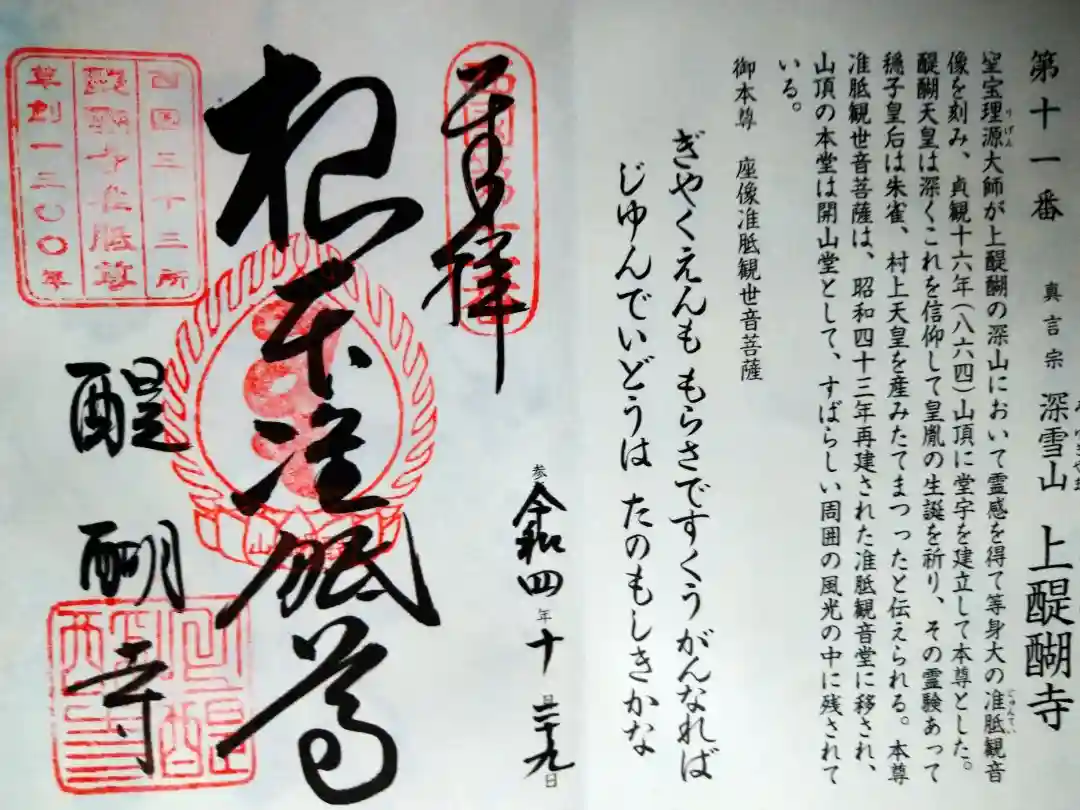 第十一番 真言宗 深雪山 上醍醐寺
聖宝理源大師が上醍醐の深山において霊感を得て等身大の准胝観音
りげん
じゅんてい
像を刻み、貞観十六年(八六四)山頂に堂宇を建立して本尊とした。
醍醐天皇は深くこれを信仰して皇胤の生誕を祈り、その霊験あって
穏子皇后は朱雀、村上天皇を産みたてまつったと伝えられる。本尊
准胝観世音菩薩は、昭和四十三年再建された准胝観音堂に移され、
山頂の本堂は開山堂として、すばらしい周囲の風光の中に残されて
いる。
御本尊 座像准胝観世音菩薩
ぎやくえんも もらさですくうがんなれば
じゆんでいどうは たのもしきかな
奉拝
参 令和四年十月二十九日
根本准胝尊
醍醐寺
西国三十三所
醍醐寺准胝尊
草創一三〇〇年